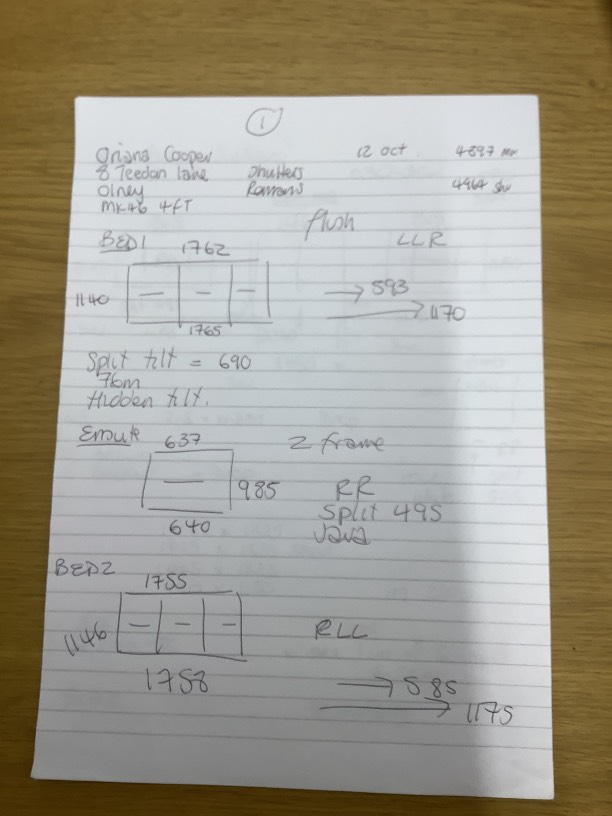 1
Oriana Cooper 12 oct. 4897 Mr
8 Teedon lane Shutters
Olney Romans 4964 Shu
MK46 4FT
flush
BED1 1762 LLR
1140 → 593
→ 1170
1765
Split tilt = 690
76m
Hidden tilt.
Ensuite 637 Z frame
985 RR
Split 495
640 Java
BED2
1755
1146 RLL
1758 → 585
→ 1175